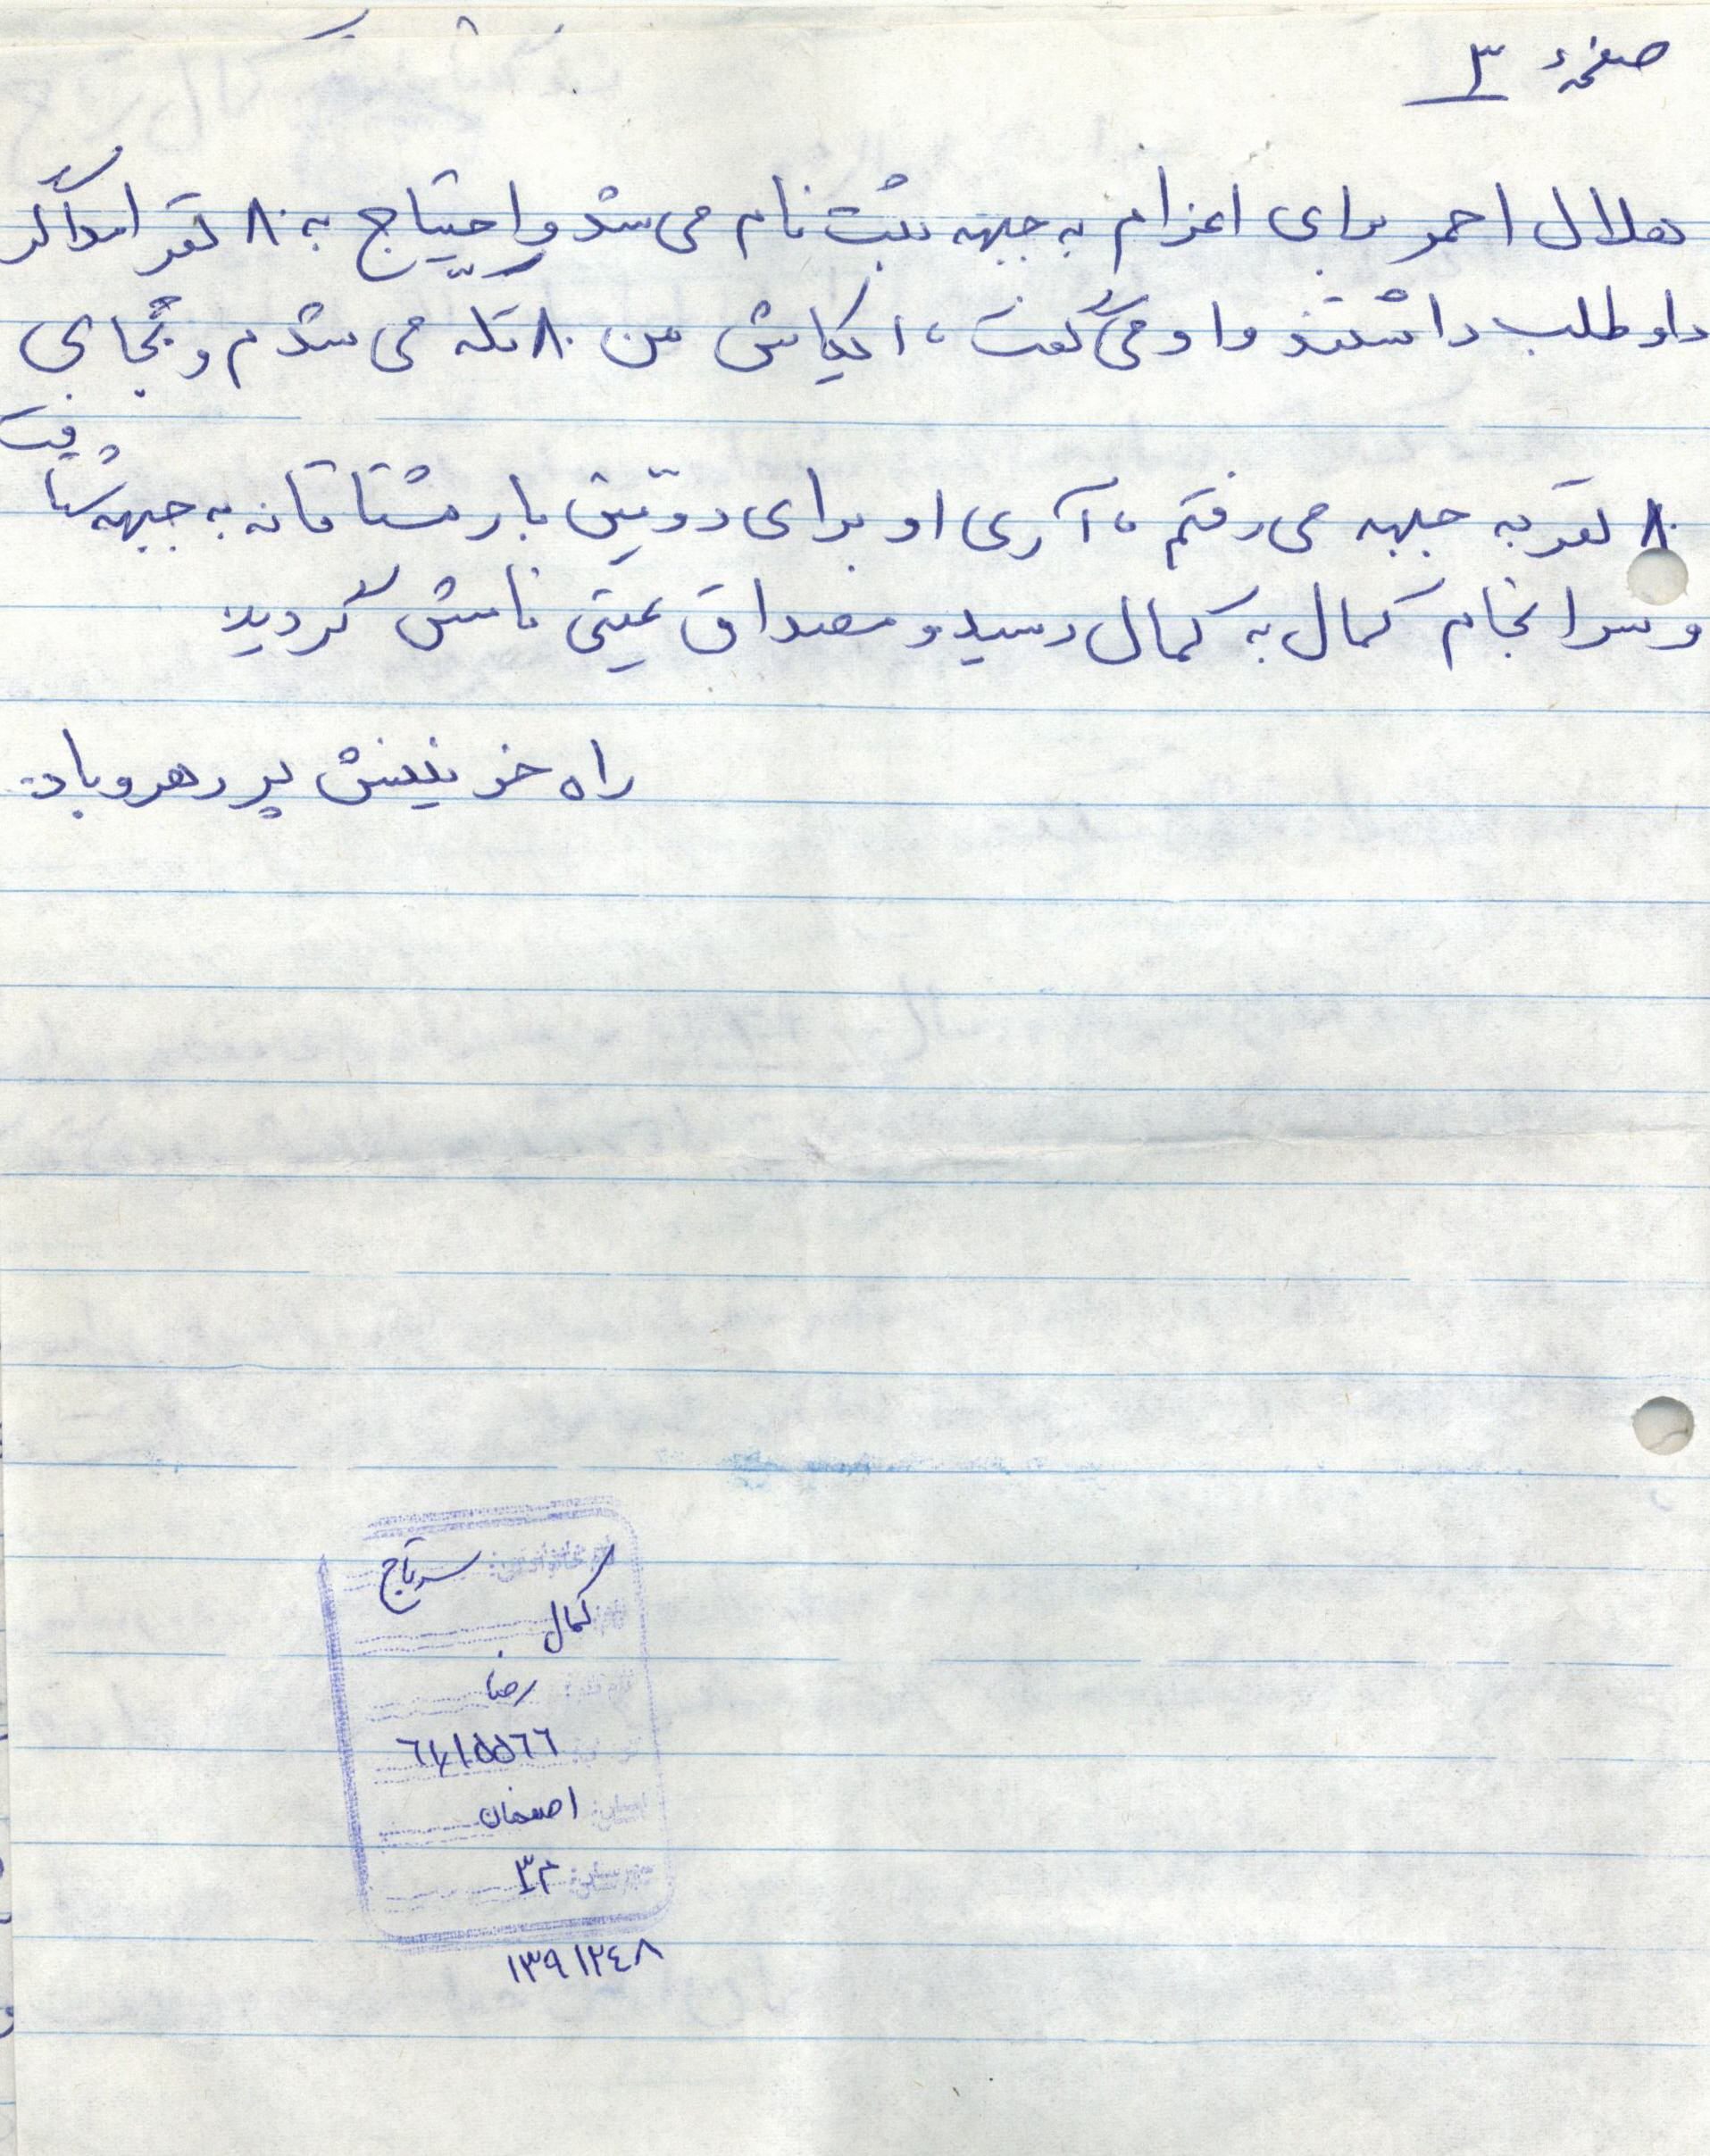 صفحهٔ ۳
هلال احمر برای اعزام به جبهه ثبت نام می شد و احتیاج به ۸۰ نفر امدادگر
داوطلب داشتند و او می گفت، ایکاش من ۸۰ تکه می شدم و بجای
۸۰ نفر به جبهه می رفتم، آری او برای دومین بار مشتاقانه به جبهه شتافت
و سرانجام کمال به کمال رسید و مصداق عینی نامش گردید.
راه خونینش پر رهرو باد.
نام خانوادگی: سرتاج
کمال
رضا
اصفهان
۳۲
۱۳۹۱۲۴۸